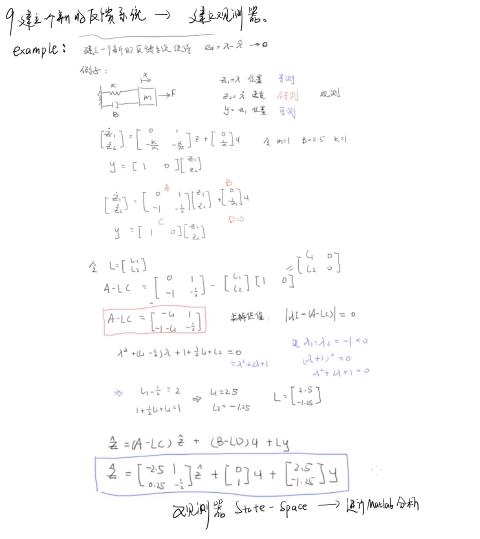 9.建立一个新的反馈系统 → 建立观测器。
example: 建立一个新的反馈系统使得 eₓ = x - x̂ → 0
例子:
x
K
m
→F
B
z₁ = x 位置 可测
z₂ = ẋ 速度 不可测 观测
y = z₁ 位置 可测
[ż₁; ż₂] = [0 1; -K/m -B/m] z + [0; 1/m] u 令 m=1 B=0.5 K=1
y = [1 0][z₁; z₂]
A B
[ż₁; ż₂] = [0 1; -1 -½][z₁; z₂] + [0; 1/m] u
C D=0
y = [1 0][z₁; z₂]
令 L = [L₁; L₂]
A-LC = [0 1; -1 -½] - [L₁; L₂][1 0] [L₁ 0; L₂ 0]
A-LC = [-L₁ 1; -1-L₂ -½] 求特征值: |λI-(A-LC)| = 0
λ²+(L₁-½)λ+1+½L₁+L₂ = 0 λ₁=λ₂=-1<0
= λ²+2λ+1 (λ+1)²=0
λ²+2λ+1=0
⇒ L₁-½=2 ⇒ L₁=2.5 L = [2.5; -1.25]
1+½L₁+L₂=1 L₂=-1.25
ẑ = (A-LC) ẑ + (B-LD) u + Ly
ẑ = [-2.5 1; 0.25 -½] ẑ + [0; 1] u + [2.5; -1.25] y
观测器 State-Space → 进行Matlab分析